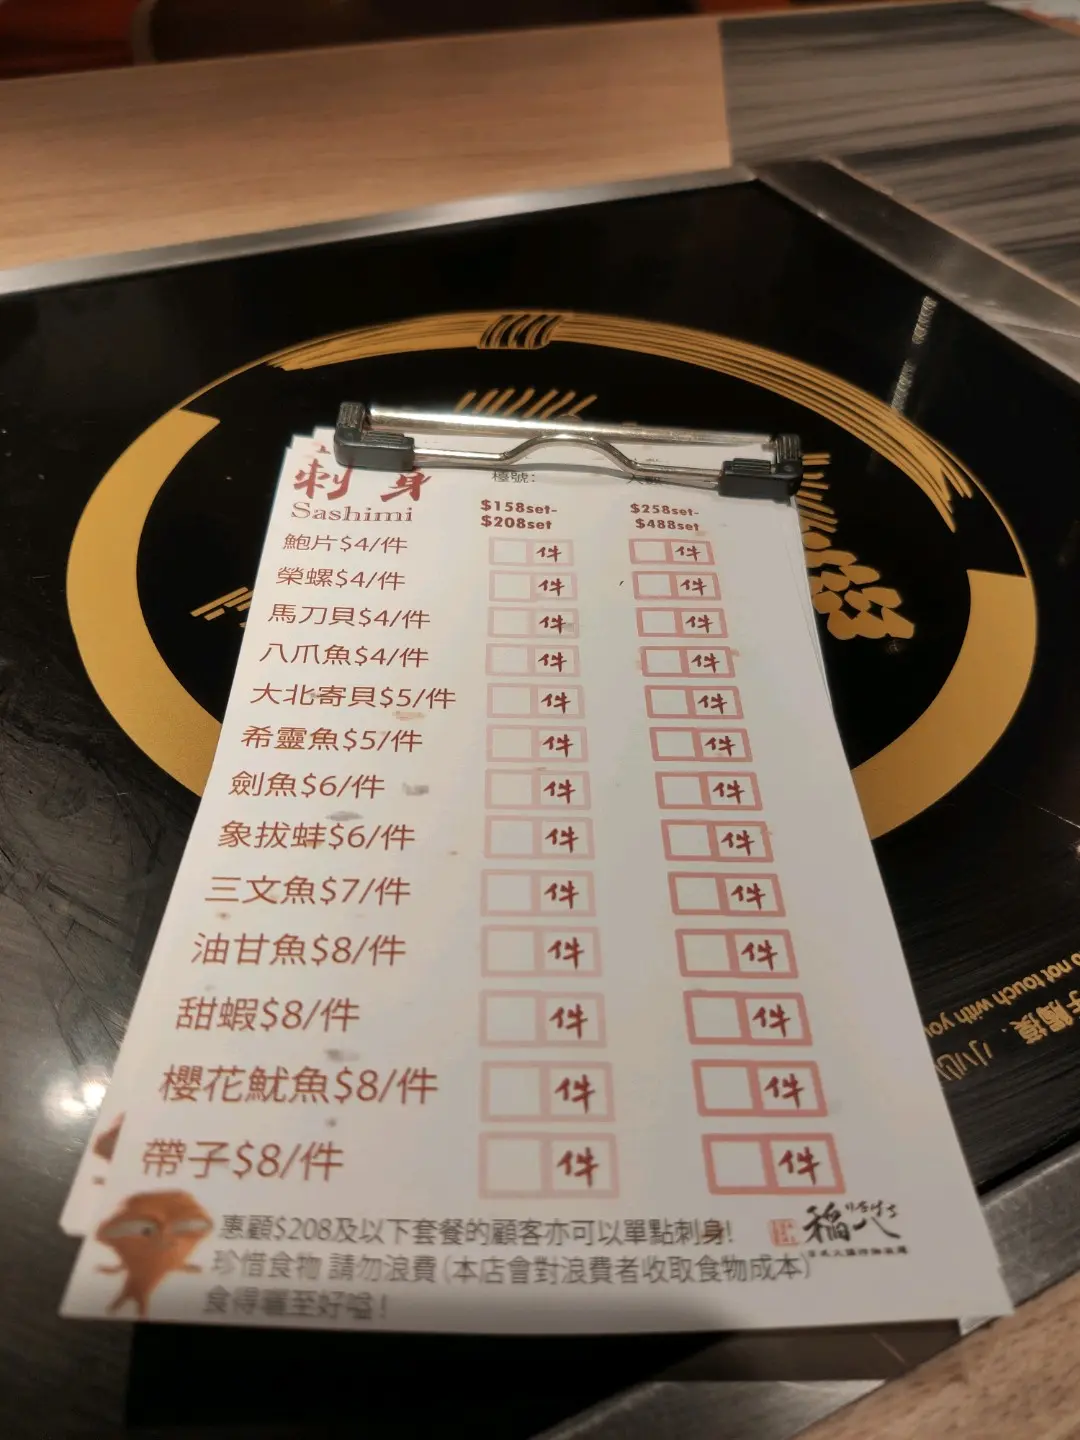 刺身
檯號:
Sashimi
$158set-
$208set
$258set-
$488set
鮑片$4/件
件
件
榮螺$4/件
件
件
馬刀貝$4/件
件
件
八爪魚$4/件
件
件
大北寄貝$5/件
件
件
希靈魚$5/件
件
件
劍魚$6/件
件
件
象拔蚌$6/件
件
件
三文魚$7/件
件
件
油甘魚$8/件
件
件
甜蝦$8/件
件
件
櫻花魷魚$8/件
件
件
帶子$8/件
件
件
惠顧$208及以下套餐的顧客亦可以單點刺身!
珍惜食物 請勿浪費 (本店會對浪費者收取食物成本)
食得曬至好嗌!
稲八
not touch with
手觸摸.
小心